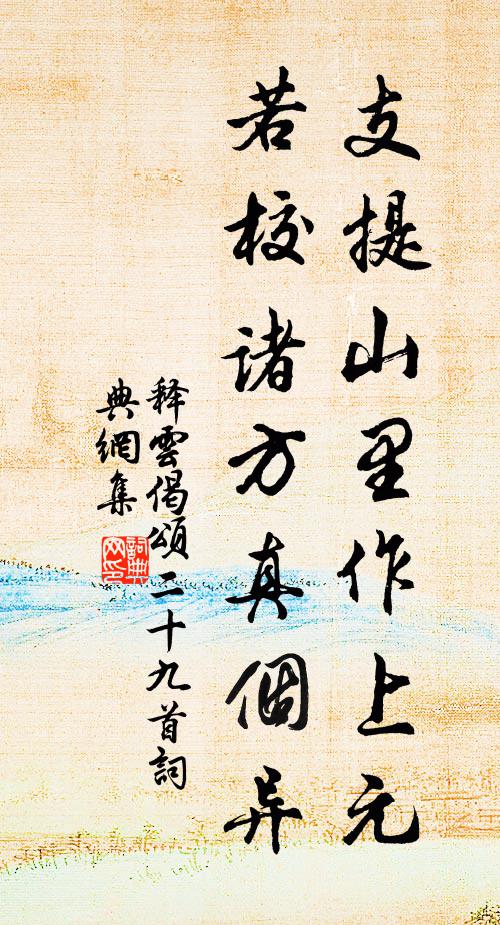 支提山里作上元
若校诸方真個异
释雲偈頌二十九首詞
典網集
詞典
网印